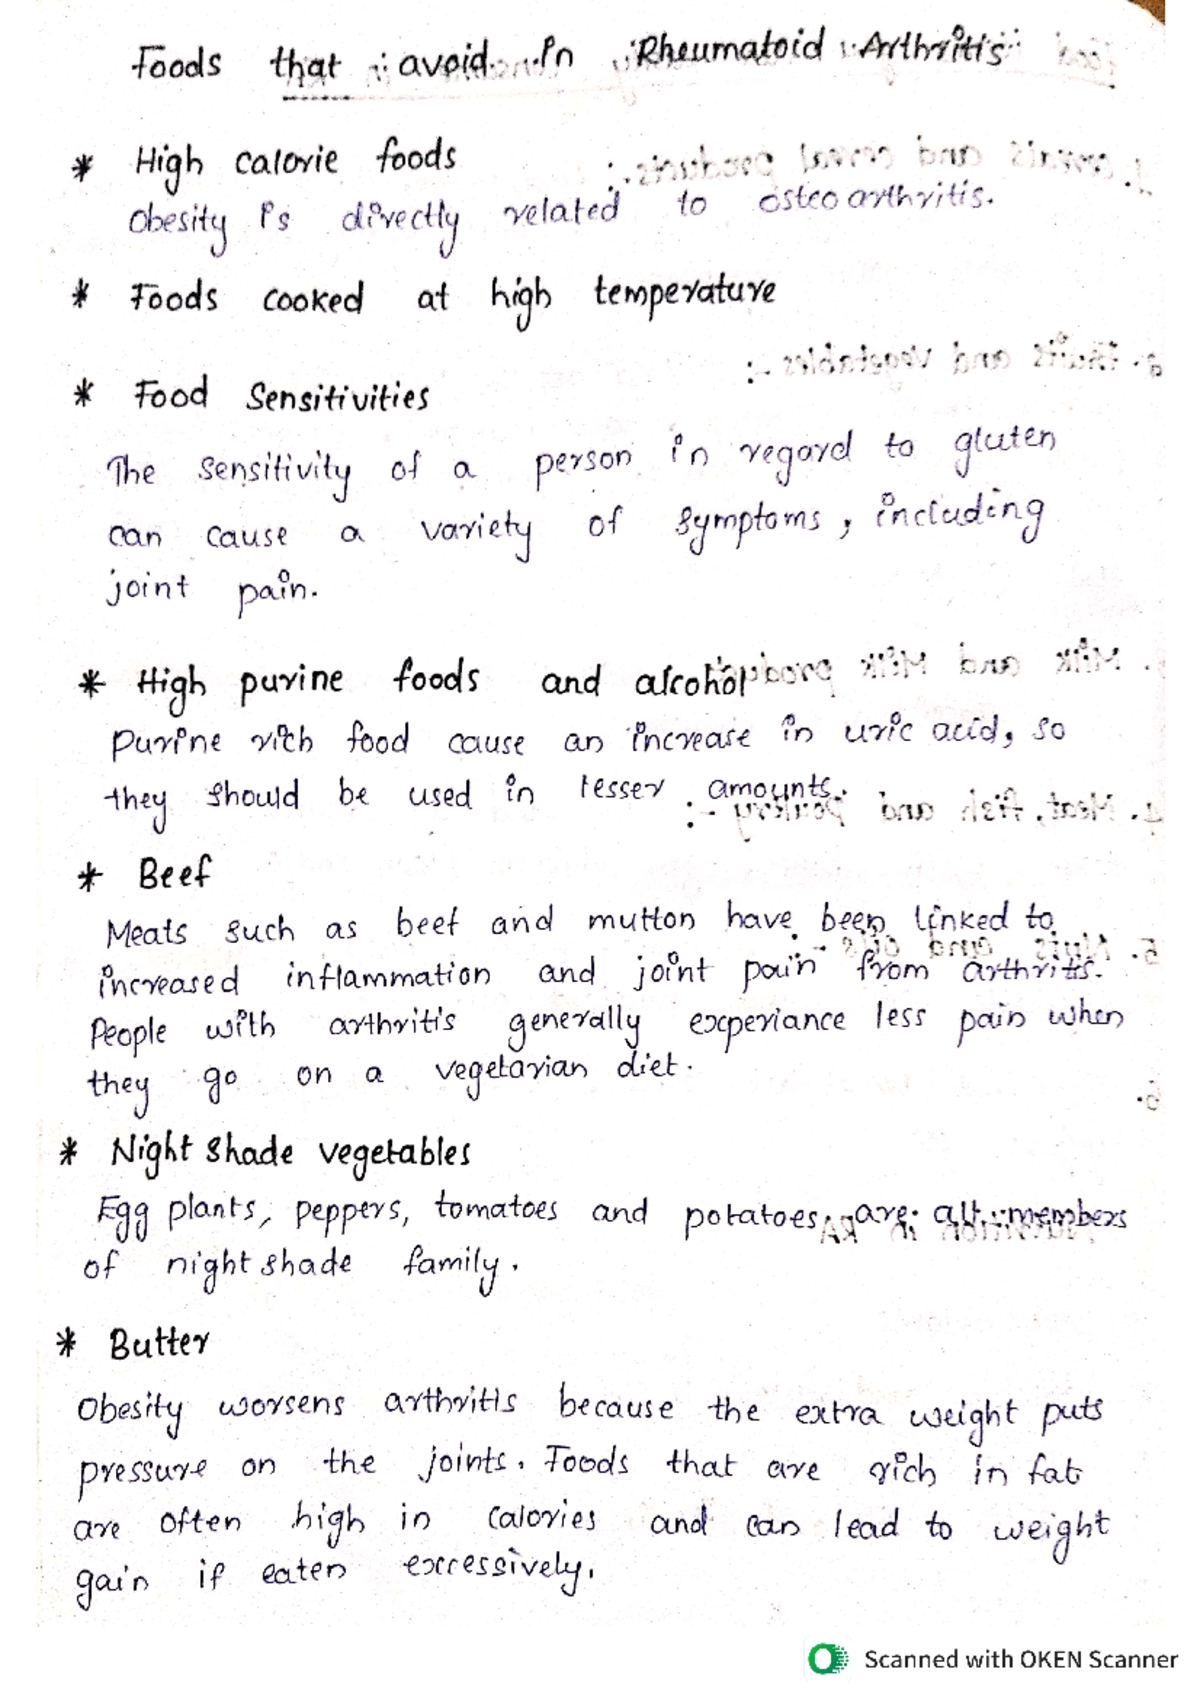 Foods that avoid in Rheumatoid Arthritis
* High calorie foods
Obesity is directly related to osteoarthritis.
* Foods cooked at high temperature
* Food Sensitivities
The sensitivity of a person in regard to gluten
can cause a variety of symptoms, including
joint pain.
* High purine foods and alcohol
Purine rich food cause an increase in uric acid, so
they should be used in lesser amounts.
* Beef
Meats such as beef and mutton have been linked to
increased inflammation and joint pain from arthritis.
People with arthritis generally experiance less pain when
they go on a vegetarian diet.
* Night shade vegetables
Egg plants, peppers, tomatoes and potatoes are all members
of night shade family.
* Butter
Obesity worsens arthritis because the extra weight puts
pressure on the joints. Foods that are rich in fat
are often high in calories and can lead to weight
gain if eaten excessively.
Scanned with OKEN Scanner